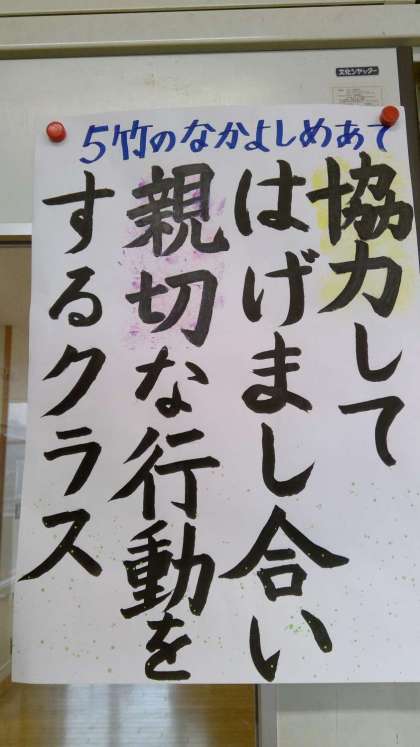 文化シヤッター
5竹のなかよしめあて
協力して
はげまし合い
親切な行動を
するクラス